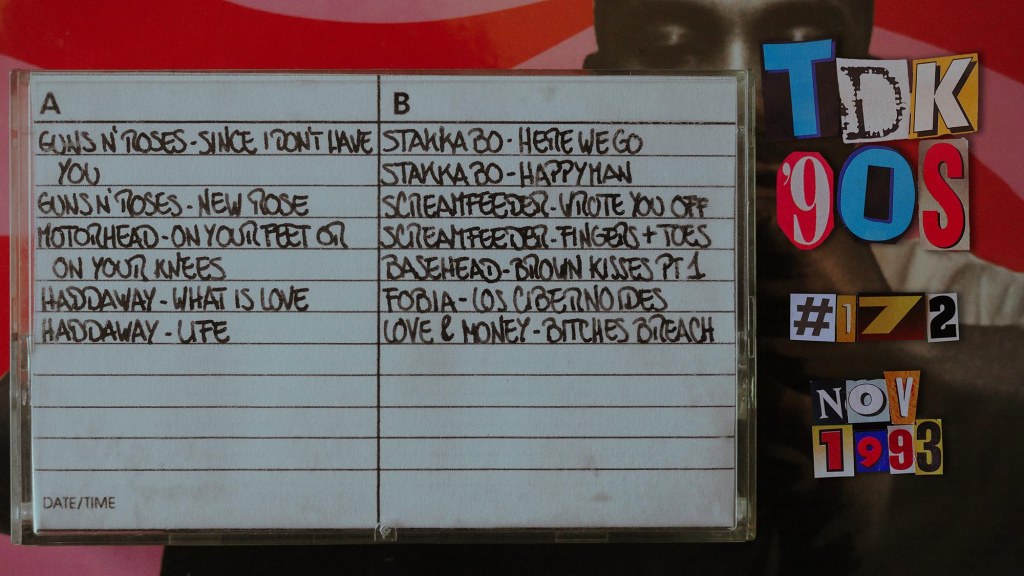 A
GUNS N' ROSES - SINCE I DON'T HAVE
YOU
GUNS N' ROSES - NEW ROSE
MOTORHEAD - ON YOUR FEET OR
ON YOUR KNEES
HADDAWAY - WHAT IS LOVE
HADDAWAY - LIFE
DATE/TIME
B
STAKKA BO - HERE WE GO
STAKKA BO - HAPPY MAN
SCREAMFEEDER - WROTE YOU OFF
SCREAMFEEDER - FINGERS + TOES
BASEHEAD - BROWN KISSES PT 1
FOBIA - LOS CIBERNOIDES
LOVE & MONEY - BITCHES BREACH
TDK
'90S
#172
NOV
1993